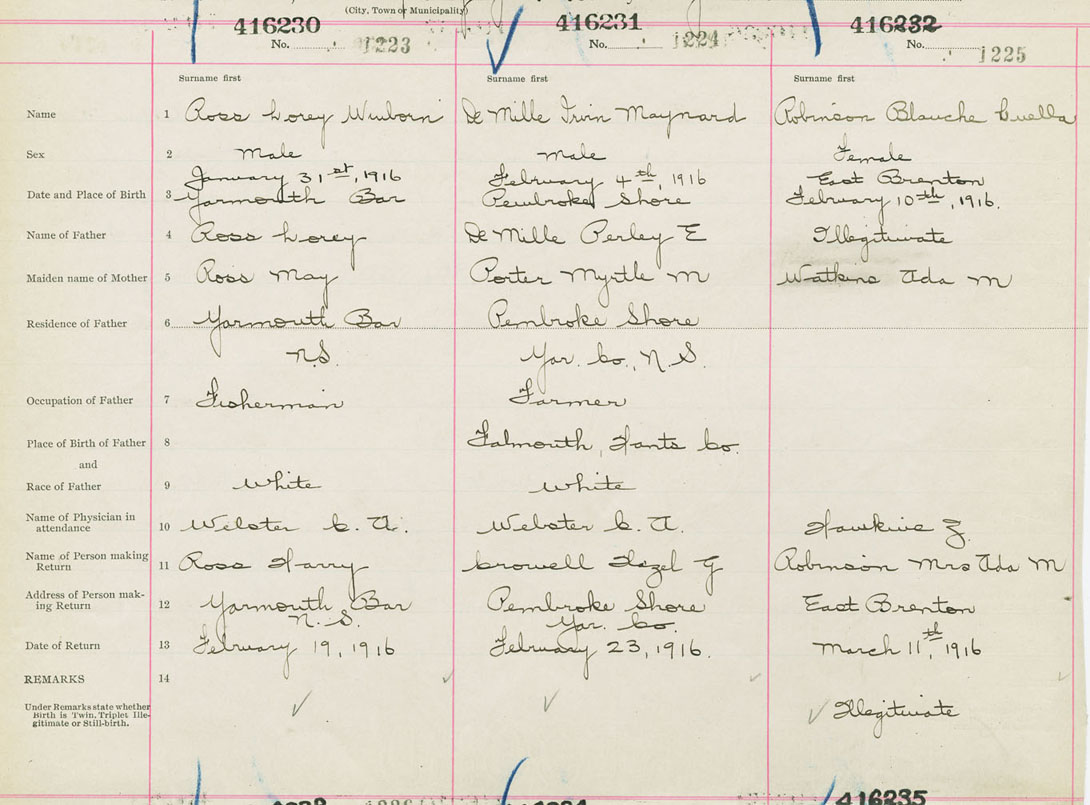 (City, Town or Municipality)
416230 416231 416232
No. 1223 No. 1224 No. 1225
Surname first Surname first Surname first
Name 1 Ross Lorey Winborn De Mille Irvin Maynard Robinson Blanche Luella
Sex 2 Male Male Female
January 31st, 1916 February 4th, 1916 East Brenton
Date and Place of Birth 3 Yarmouth Bar Pembroke Shore February 10th, 1916.
Name of Father 4 Ross Lorey De Mille Perley E Illegitimate
Maiden name of Mother 5 Ross May Porter Myrtle M Watkins Ada M
Residence of Father 6 Yarmouth Bar Pembroke Shore
N.S. Yar. Co., N.S.
Occupation of Father 7 Fisherman Farmer
Place of Birth of Father 8 Falmouth, Hants Co.
and
Race of Father 9 White White
Name of Physician in attendance 10 Webster C. A. Webster C. A. Hawkins Z.
Name of Person making Return 11 Ross Harry Crowell Hazel G Robinson Mrs Ada M
Address of Person mak-
ing Return 12 Yarmouth Bar Pembroke Shore East Brenton
N.S. Yar. Co.
Date of Return 13 February 19, 1916 February 23, 1916. March 11th, 1916
REMARKS 14
Under Remarks state whether
Birth is Twin, Triplet Ille-
gitimate or Still-birth. Illegitimate
416235